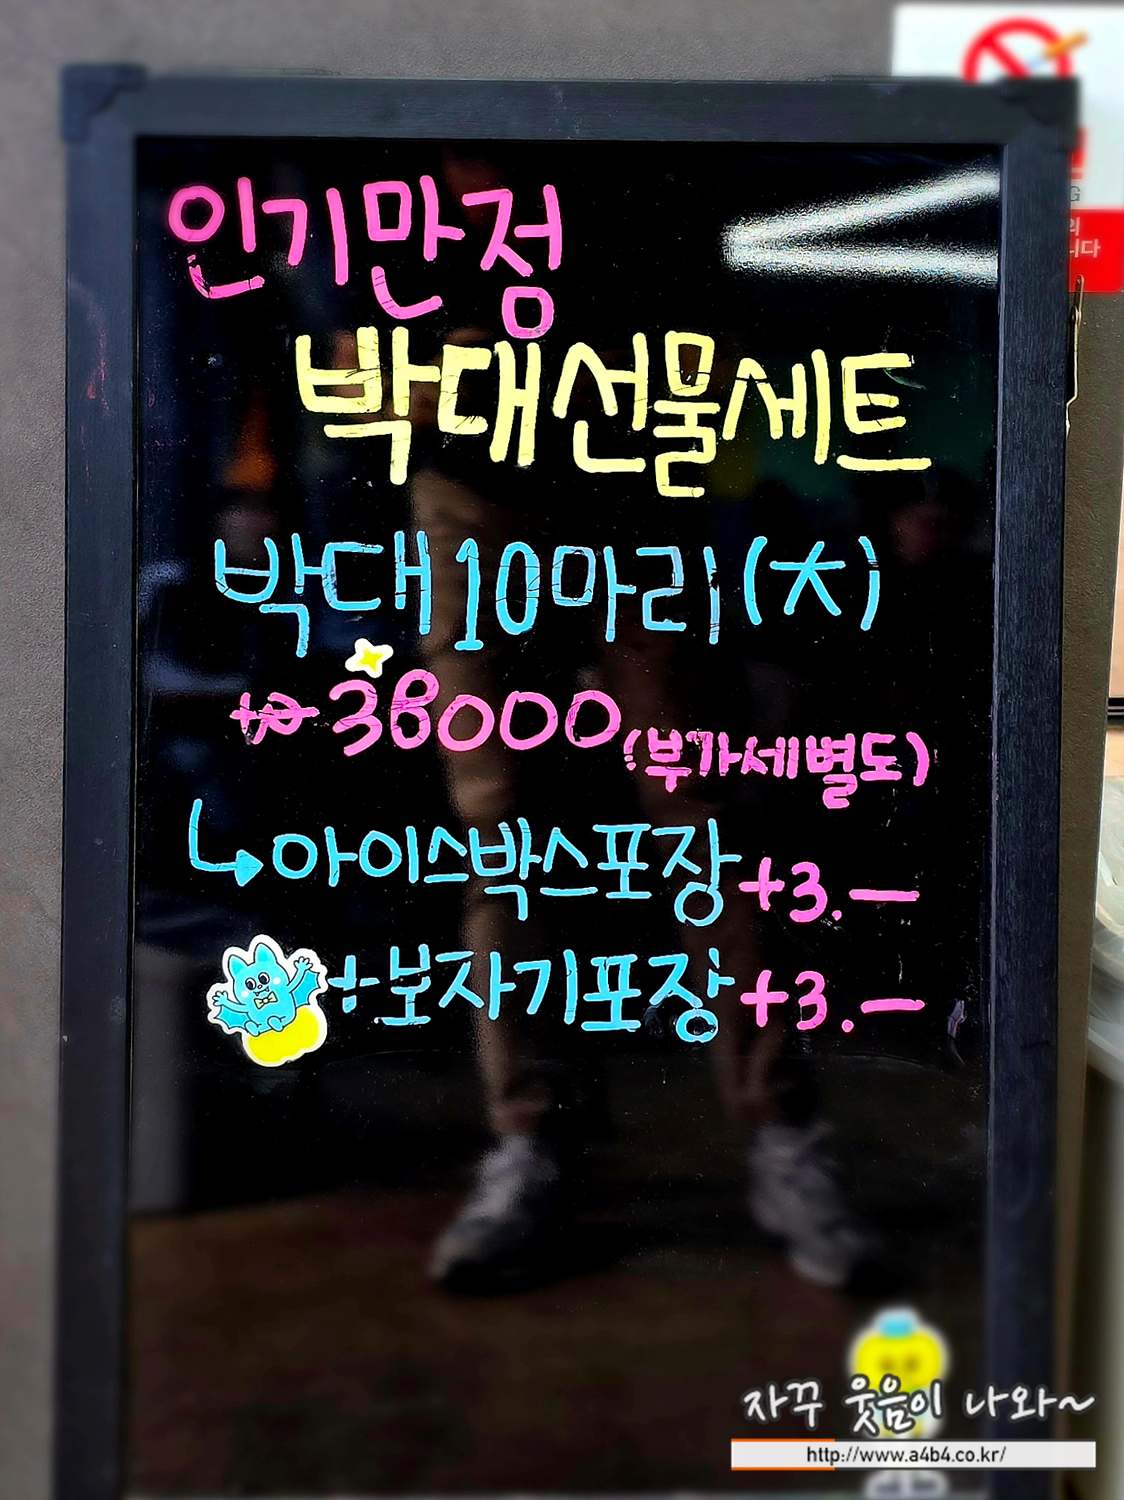 인기만점
박대선물세트
박대10마리(大)
→38000(부가세별도)
↳아이스박스포장+3.-
+보자기포장+3.-
G
의
니다
자꾸 웃음이 나와~
http://www.a4b4.co.kr/